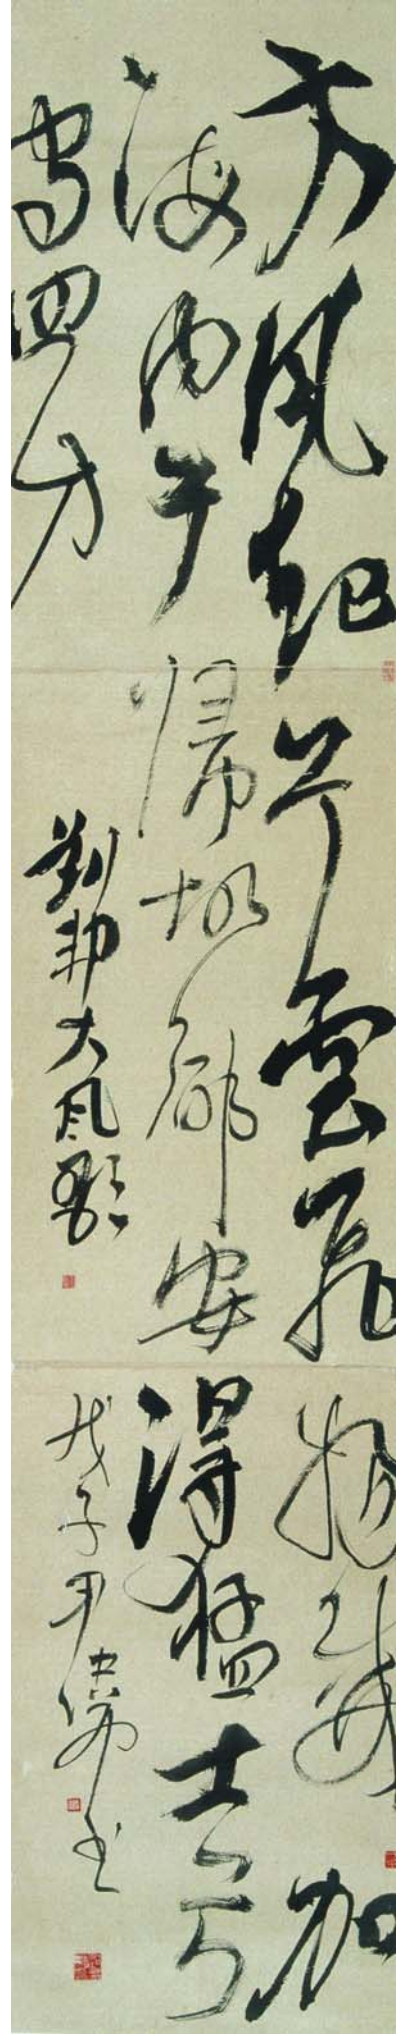 大風起兮雲飛揚威加
海内兮歸故鄉安得猛士兮
守四方
劉邦大風歌
戊子
书